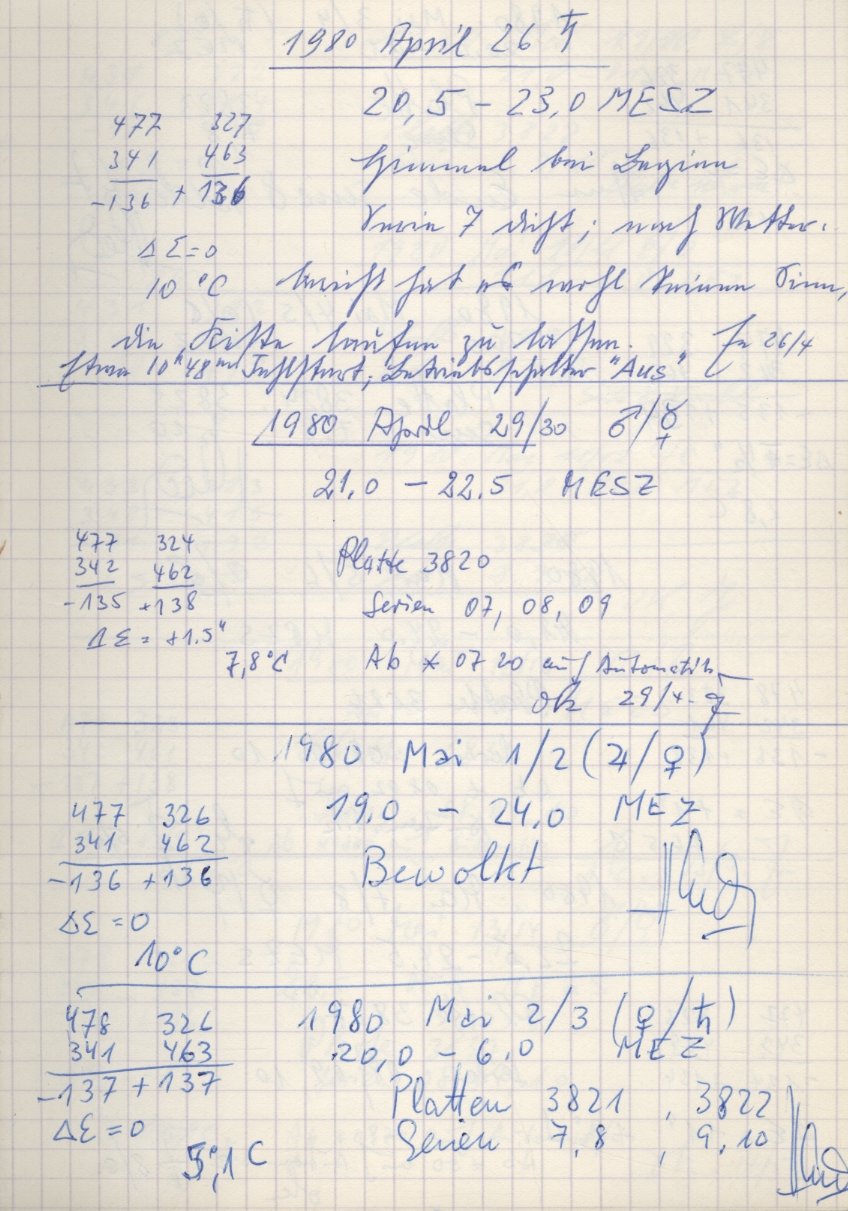 1980 April 26 ♄
20,5 – 23,0 MESZ
477 327
341 463
-136 + 136
Himmel bei Beginn
Serie 7 dicht; nach Wetter-
ΔΣ=0
10 °C bericht hat es wohl keinen Sinn,
die Kiste laufen zu lassen. 26/4
Etwa 10ʰ48ᵐ Fehlstart, Betriebsschalter "Aus"
1980 April 29/30 ♂/☿
21,0 – 22,5 MESZ
477 324
342 462
-135 +138
Platte 3820
Serien 07, 08, 09
ΔΣ = +1.5"
7,8°C Ab * 07 20 auf Automatik
29/4
1980 Mai 1/2 (♃/♀)
477 326
341 462
-136 +136
19,0 – 24,0 MEZ
Bewolkt
ΔΣ = 0
10°C
478 326
341 463
-137 + 137
1980 Mai 2/3 (♀/♄)
20,0 – 6.0 MEZ
Platten 3821 , 3822
ΔΣ = 0
Serien 7, 8 , 9, 10
5°,1 C